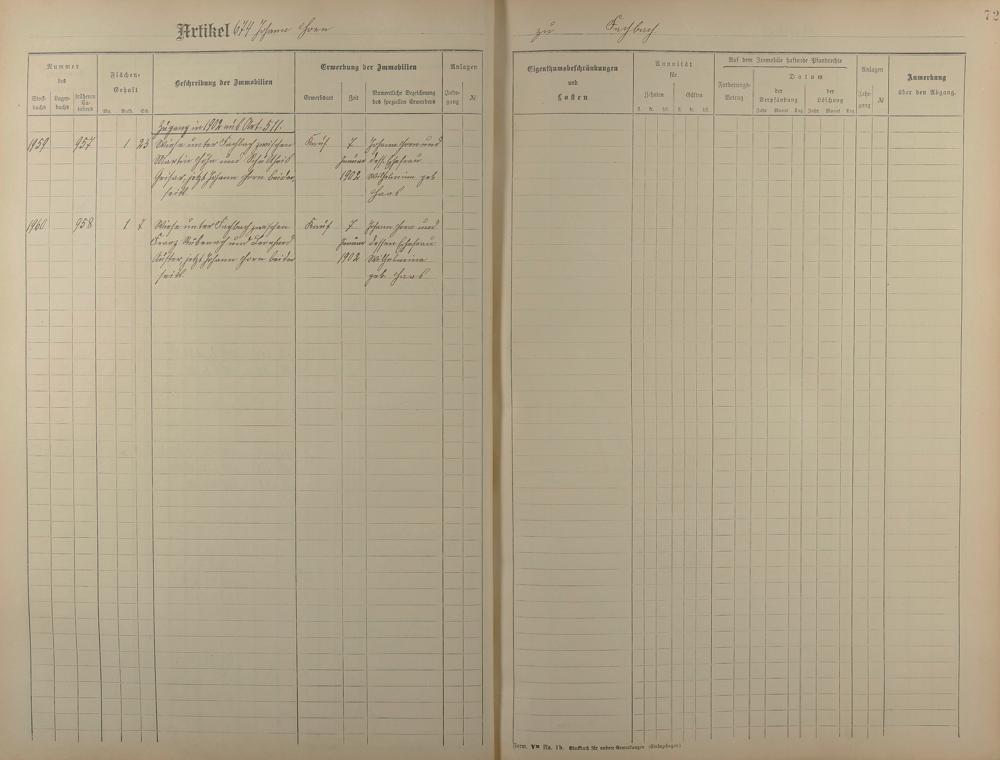 Artikel 674 Johann Horn
zu Fachbach
72
Nummer
des
Stockbuchs
Lagerbuchs
früheren Katasters
Flächen-
Gehalt
Mg. Ruth. Sch.
Beschreibung der Immobilien
Erwerbung der Immobilien
Erwerbsart
Zeit
Namentliche Bezeichnung
des speziellen Erwerbers
Anlagen
Jahrgang
№
Eigenthumsbeschränkungen
und
Lasten
Annuität
für
Zehnten
Gülten
fl. kr. hl. fl. kr. hl.
Auf dem Immobile haftende Pfandrechte
Forderungs-
Betrag
Datum
der
Verpfändung
der
Löschung
Jahr Monat Tag Jahr Monat Tag
Anlagen
Jahrgang
№
Anmerkung
über den Abgang.
Zugang in 1902 aus Art. 511.
1959 957 1 23 Wiese unter Fachbach zwischen Kauf 7 Johann Horn und
Martin Höhn und Schultheis Januar dess. Ehefrau
Geisar, jetzt Johann Horn beider 1902 Wilhelmine geb
seits Haas
1960 958 1 7 Wiese unter Fachbach zwischen Kauf 7 Johann Horn und
Franz Rübenach und Bernhard Januar dessen Ehefrau
jetzt Johann Horn beider 1902 Wilhelmine
seits geb. Haas
Form. No. 1b. Stockbuch für andere Gemarkungen (Einlagebogen)